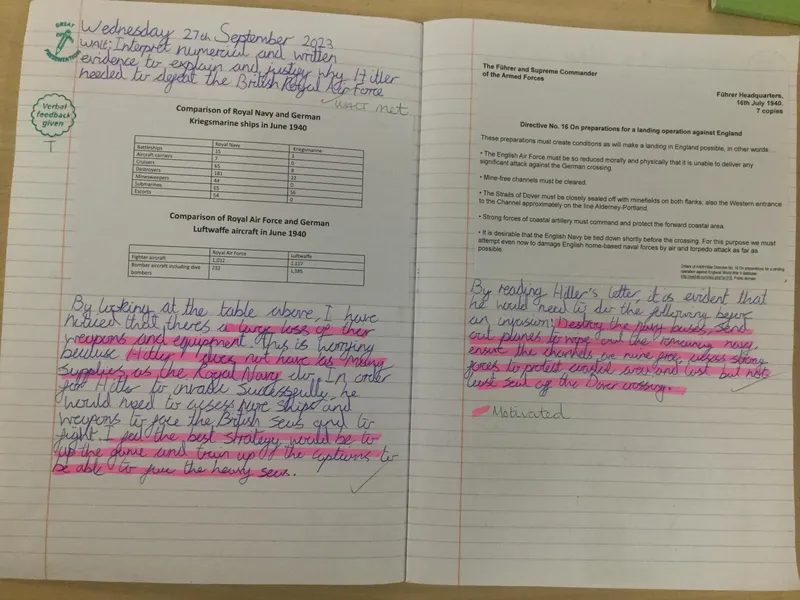 GREAT
PRESENTATION
Wednesday 27th September 2023
WALT: Interpret numerical and written
evidence to explain and justify why Hitler
needed to defeat the British Royal Air Force
WALT met
Verbal
feedback
given
T
Comparison of Royal Navy and German
Kriegsmarine ships in June 1940
Royal Navy Kriegsmarine
Battleships 15
Aircraft carriers 7
Cruisers 65
Destroyers 181
Minesweepers 44
Submarines 0
Escorts 54 0
Comparison of Royal Air Force and German
Luftwaffe aircraft in June 1940
Royal Air Force Luftwaffe
Fighter aircraft 1,032
Bomber aircraft including dive
bombers 1,395
By looking at the table above, I have
noticed that there's a large loss of their
weapons and equipment. This is worrying
because Hitler does not have as many
supplies as the Royal Navy do. In order
for Hitler to invade successfully, he
would need to assess more ships and
weapons to face the British Seas and to
fight. I feel the best strategy would be to
up the game and train up the captains to
be able to face the heavy seas.
The Führer and Supreme Commander
of the Armed Forces
Führer Headquarters,
16th July 1940.
7 copies
Directive No. 16 On preparations for a landing operation against England
These preparations must create conditions as will make a landing in England possible, in other words:
• The English Air Force must be so reduced morally and physically that it is unable to deliver any
significant attack against the German crossing.
• Mine-free channels must be cleared.
• The Strads of Dover must be closely sealed off with minefields on both flanks; also the Western entrance
to the Channel approximately on the line Alderney-Portland.
• Strong forces of coastal artillery must command and protect the forward coastal area.
• It is desirable that the English Navy be tied down shortly before the crossing. For this purpose we must
attempt even now to damage English home-based naval forces by air and torpedo attack as far as
possible.
By reading Hitler's letter, it is evident that
he would need to do the following before
an invasion: Destroy the navy bases, send
out planes to wipe out the remaining navy,
ensure the channels are mine free, access strong
forces to protect coastal area and last but not
least seal off the Dover crossing.
Motivated